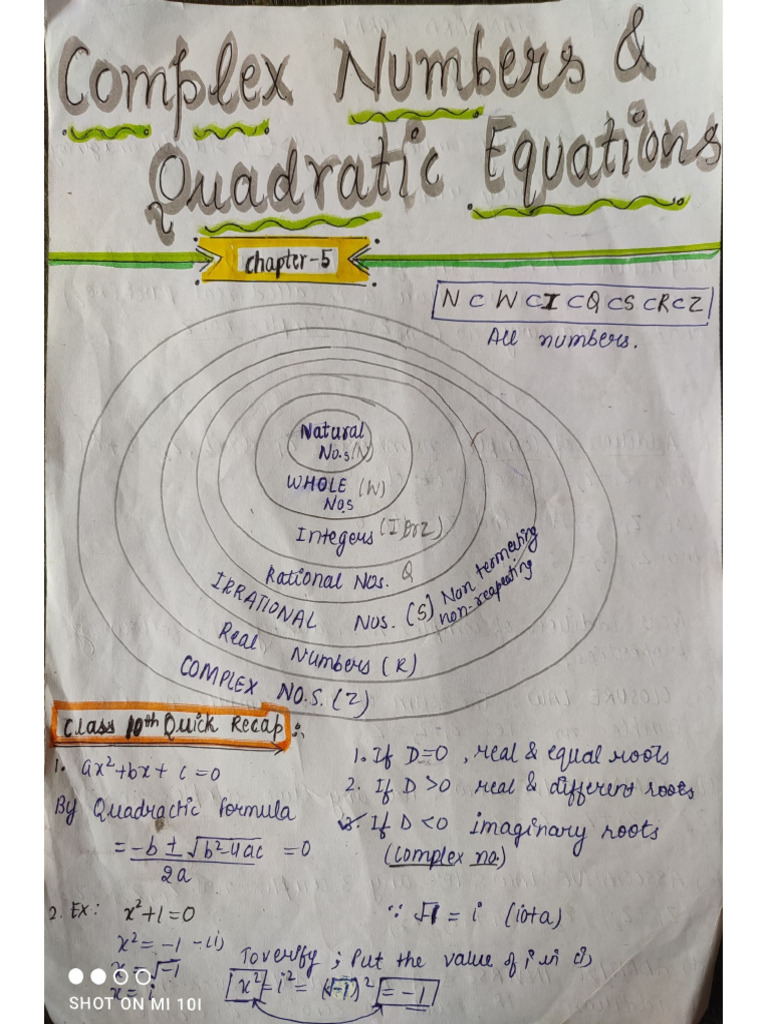 Complex Numbers &
Quadratic Equations
Chapter-5
N ⊂ W ⊂ I ⊂ Q ⊂ S ⊂ R ⊂ Z
All numbers.
Natural
No.s (N)
WHOLE (W)
NOS
Integers (I or Z)
Rational Nos. Q
IRRATIONAL Nos. (S) Non termeating
non-reapeating
Real Numbers (R)
COMPLEX NO.S. (Z)
Class 10th Quick Recap :.
1. ax²+bx+c=0
By Quadractic formula
= -b ± √b²-4ac = 0
2a
1. If D=0, real & equal roots
2. If D>0 real & different roots
3. If D<0 imaginary roots
(Complex no.)
2. Ex: x²+1=0
x² = -1 -(i)
x = √-1
x = i
∵ √-1 = i (iota)
To verify ; Put the value of i in (i)
x² = i² = (√-1)² = -1
SHOT ON MI 10I